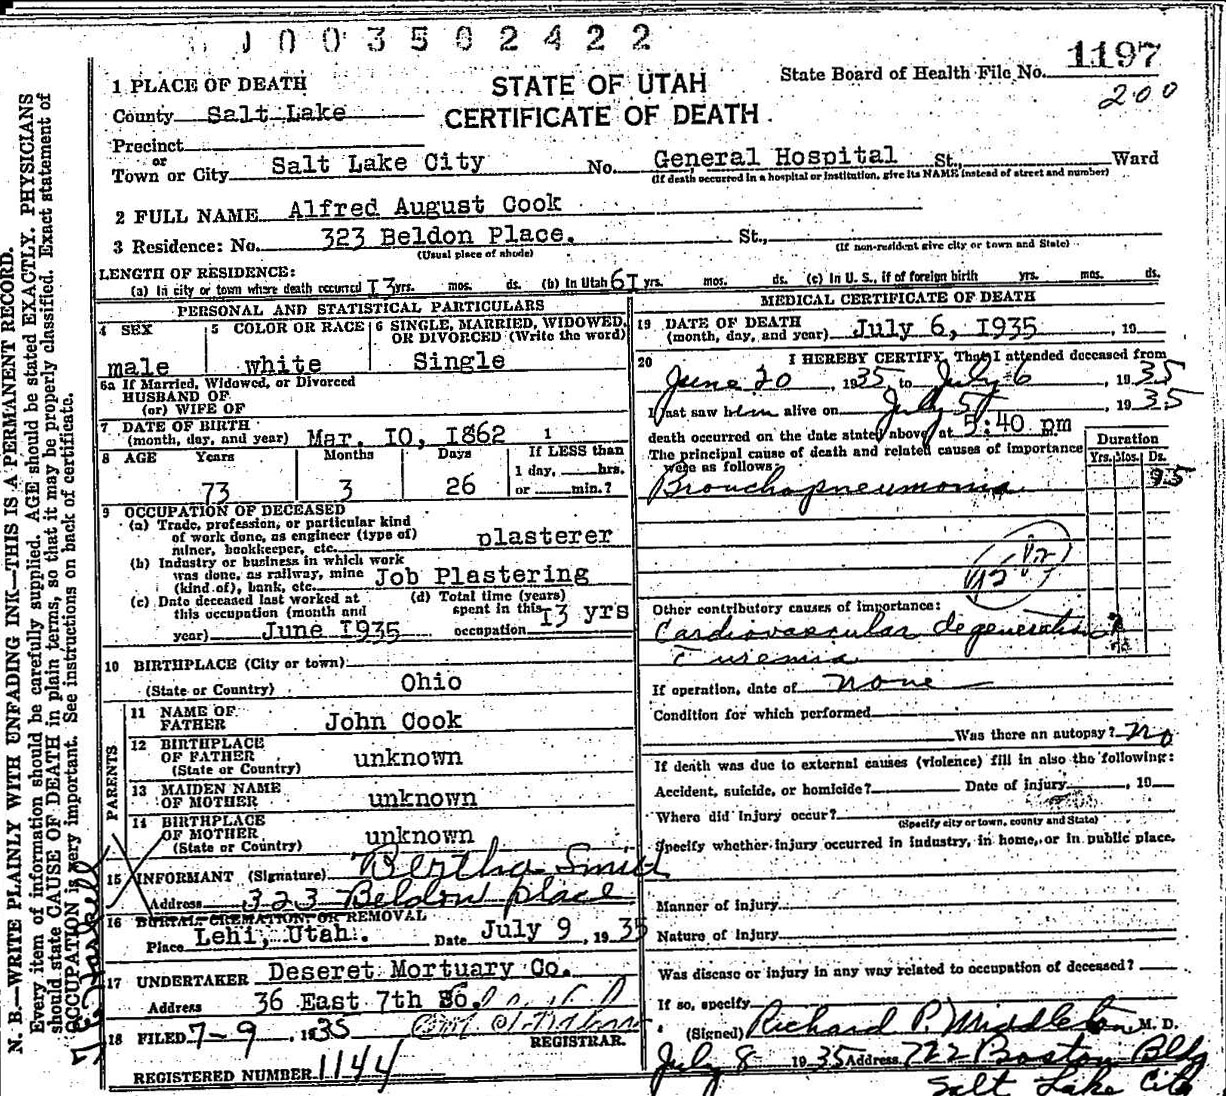 J003502422
1197
200
State Board of Health File No.
STATE OF UTAH
CERTIFICATE OF DEATH
1 PLACE OF DEATH
County Salt Lake
Precinct
or
Town or City Salt Lake City No. General Hospital St., Ward
(If death occurred in a hospital or institution, give its NAME instead of street and number)
2 FULL NAME Alfred August Cook
3 Residence: No. 323 Beldon Place. St.,
(Usual place of abode) (If non-resident give city or town and State)
LENGTH OF RESIDENCE:
(a) In city or town where death occurred 13 yrs. mos. ds. (b) In Utah 61 yrs. mos. ds. (c) In U. S., if of foreign birth yrs. mos. ds.
PERSONAL AND STATISTICAL PARTICULARS
4 SEX 5 COLOR OR RACE 6 SINGLE, MARRIED, WIDOWED, OR DIVORCED (Write the word)
male white Single
6a If Married, Widowed, or Divorced
HUSBAND OF
(or) WIFE OF
7 DATE OF BIRTH
(month, day, and year) Mar. 10, 1862
8 AGE Years Months Days If LESS than
1 day, hrs.
73 3 26 or min.?
9 OCCUPATION OF DECEASED
(a) Trade, profession, or particular kind
of work done, as engineer (type of)
miner, bookkeeper, etc. plasterer
(b) Industry or business in which work
was done, as railway, mine
(kind of), bank, etc. Job Plastering
(c) Date deceased last worked at
this occupation (month and
year) June 1935
(d) Total time (years)
spent in this
occupation 13 yrs
10 BIRTHPLACE (City or town)
(State or Country) Ohio
PARENTS
11 NAME OF
FATHER John Cook
12 BIRTHPLACE
OF FATHER unknown
(State or Country)
13 MAIDEN NAME
OF MOTHER unknown
14 BIRTHPLACE
OF MOTHER unknown
(State or Country)
15 INFORMANT (Signature) Bertha Smith
Address 323 Beldon place
16 BURIAL, CREMATION, OR REMOVAL
Place Lehi, Utah. Date July 9, 1935
17 UNDERTAKER Deseret Mortuary Co.
Address 36 East 7th So.
18 FILED 7-9, 1935
REGISTRAR.
REGISTERED NUMBER 1144
MEDICAL CERTIFICATE OF DEATH
19 DATE OF DEATH
(month, day, and year) July 6, 1935, 19
20 I HEREBY CERTIFY, That I attended deceased from
June 20, 1935 to July 6, 1935
I last saw him alive on July 5, 1935
death occurred on the date stated above, at 5:40 pm
The principal cause of death and related causes of importance
were as follows:
Duration
Yrs. Mos. Ds.
Bronchopneumonia
Other contributory causes of importance:
Cardiovascular degeneration
uremia
If operation, date of none
Condition for which performed
Was there an autopsy? no
If death was due to external causes (violence) fill in also the following:
Accident, suicide, or homicide? Date of injury, 19
Where did injury occur?
(Specify city or town, county and State)
Specify whether injury occurred in industry, in home, or in public place.
Manner of injury
Nature of injury
Was disease or injury in any way related to occupation of deceased?
If so, specify
(Signed) Richard P. Middleton M. D.
July 8 1935 Address 722 Boston Bldg
Salt Lake City
N. B.—WRITE PLAINLY WITH UNFADING INK—THIS IS A PERMANENT RECORD.
Every item of information should be carefully supplied. AGE should be stated EXACTLY. PHYSICIANS
should state CAUSE OF DEATH in plain terms, so that it may be properly classified. Exact statement of
OCCUPATION is very important. See instructions on back of certificate.